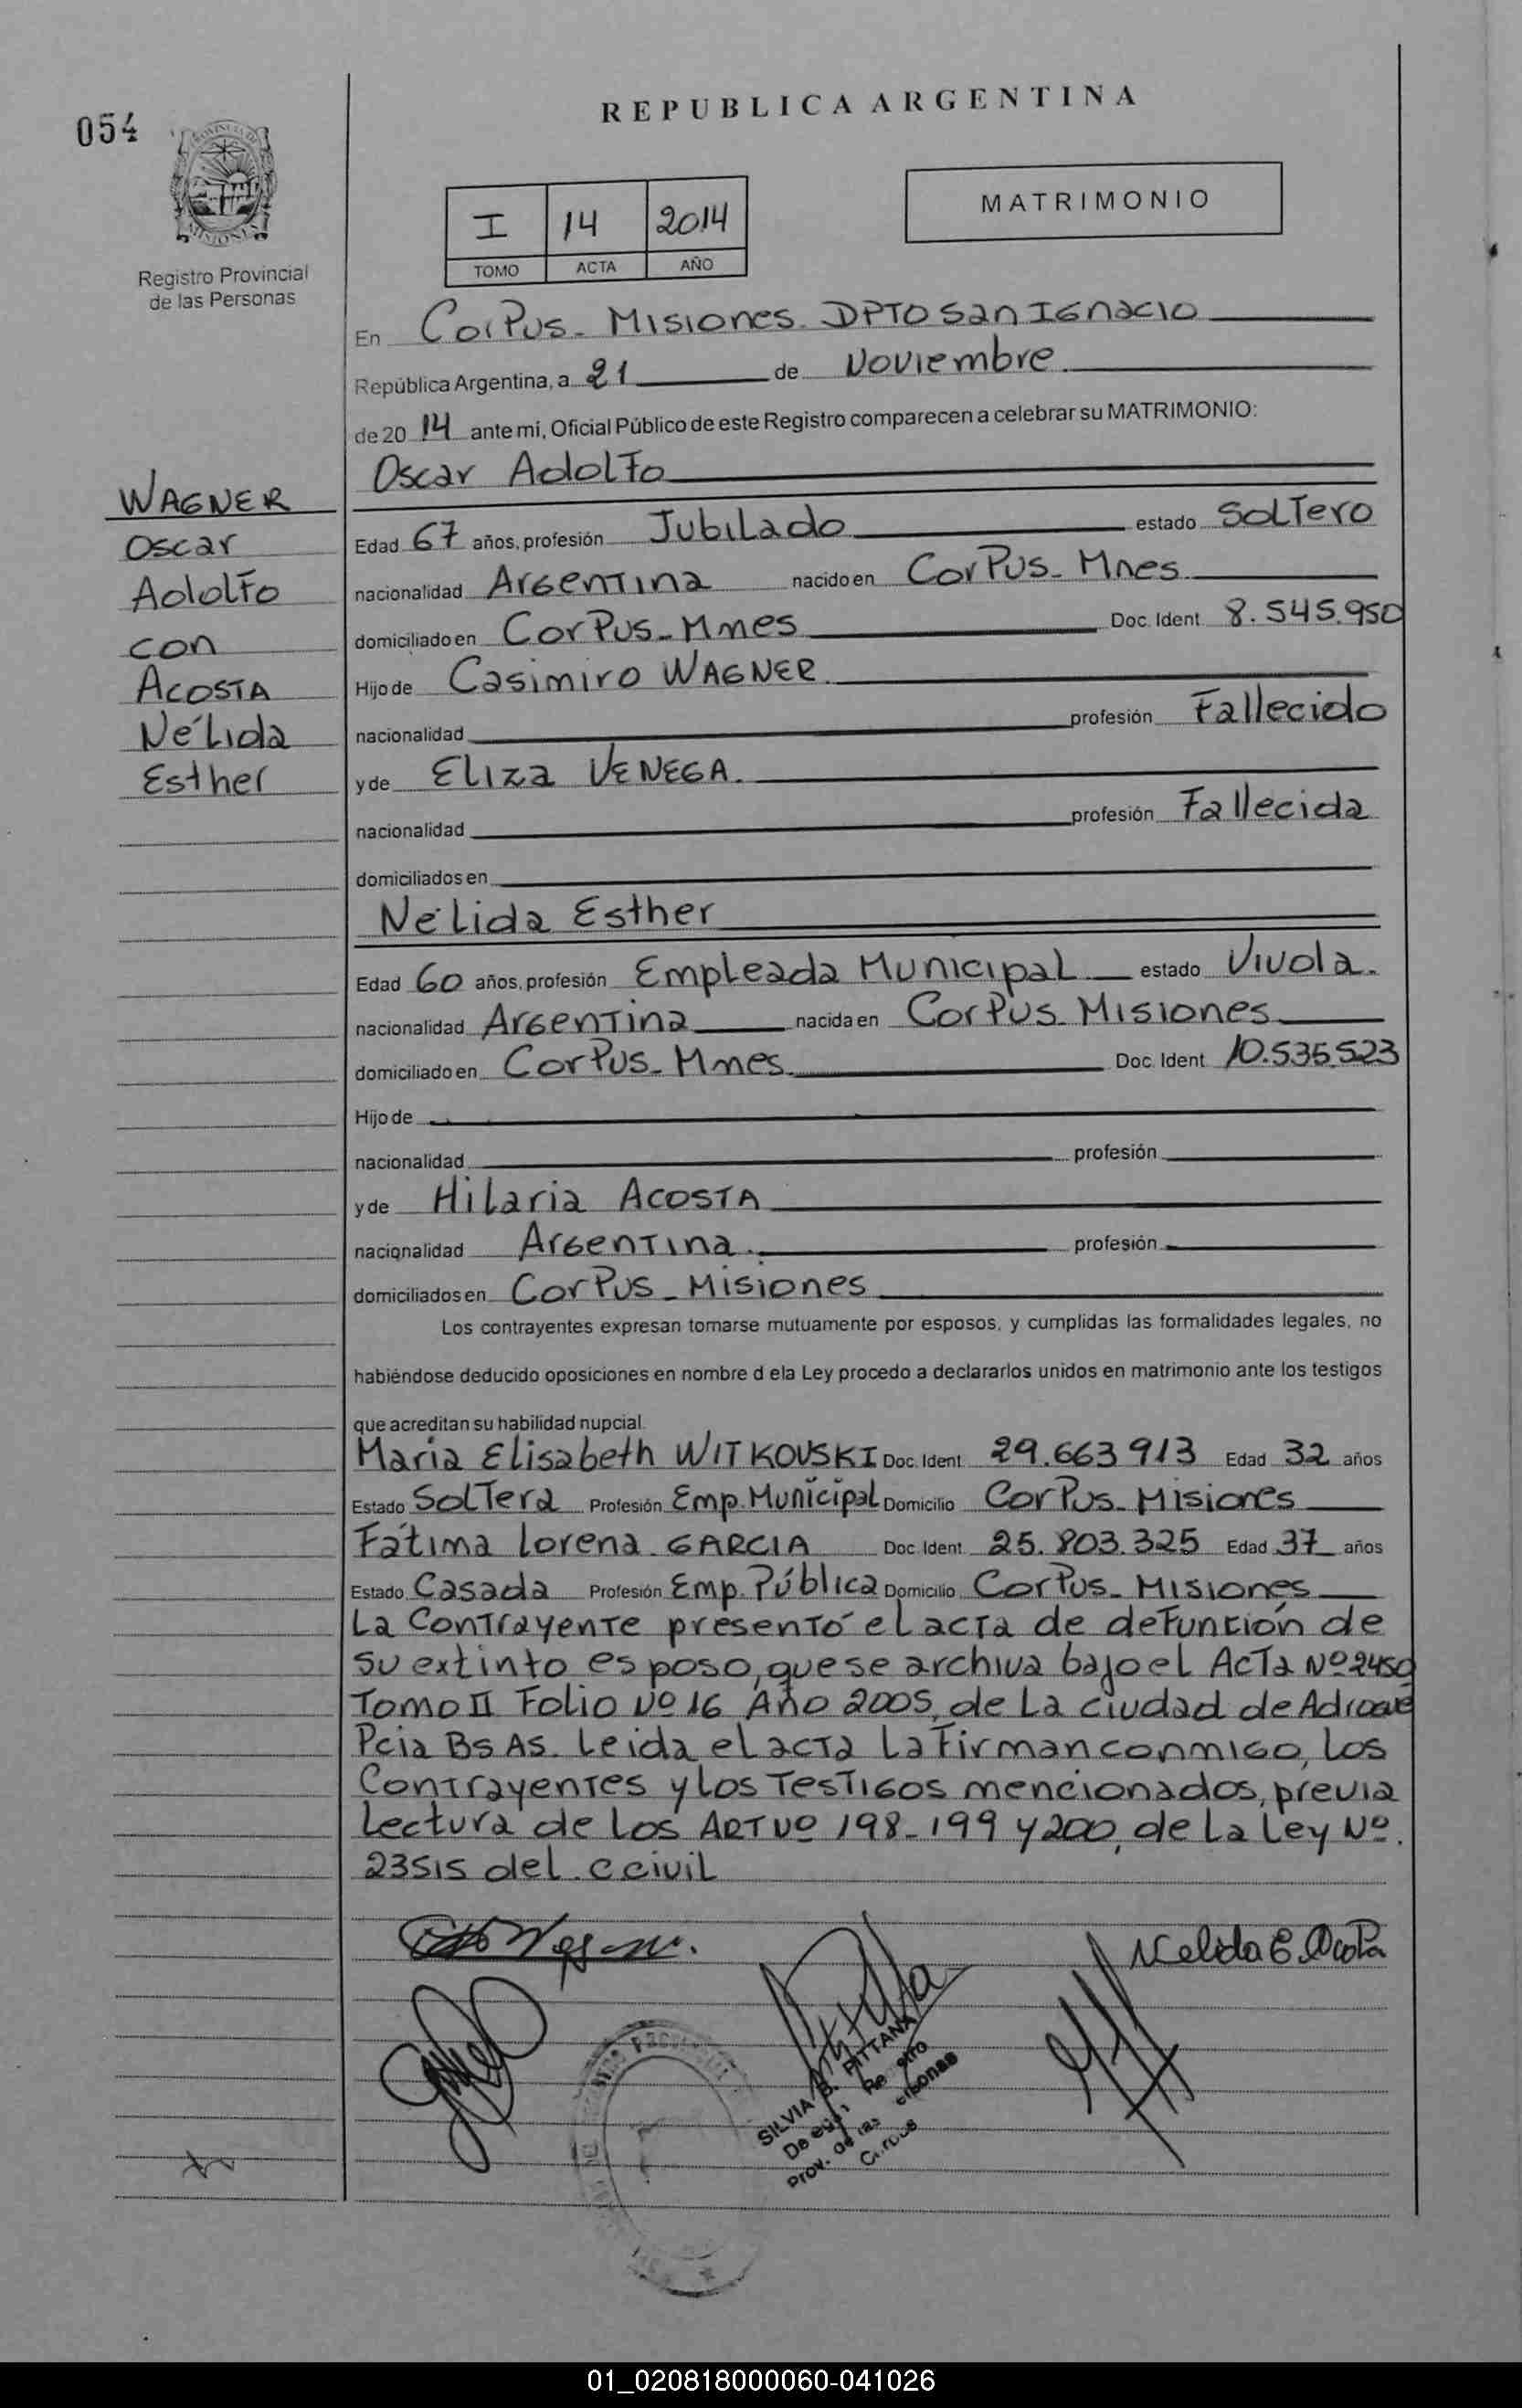 054
REPUBLICA ARGENTINA
MATRIMONIO
I 14 2014
TOMO ACTA AÑO
Registro Provincial
de las Personas
En Corpus - Misiones. DPTO San Ignacio
República Argentina, a 21 de Noviembre
de 20 14 ante mí, Oficial Público de este Registro comparecen a celebrar su MATRIMONIO:
WAGNER
Oscar
Adolfo
con
ACOSTA
Nélida
Esther
Oscar Adolfo
Edad 67 años, profesión Jubilado estado Soltero
nacionalidad Argentina nacido en Corpus - Mnes
domiciliado en Corpus - Mnes Doc. Ident. 8.545.950
Hijo de Casimiro WAGNER
nacionalidad profesión Fallecido
y de Eliza VENEGA.
nacionalidad profesión Fallecida
domiciliados en
Nélida Esther
Edad 60 años, profesión Empleada Municipal estado Viuda.
nacionalidad Argentina nacida en Corpus - Misiones
domiciliado en Corpus - Mnes. Doc. Ident. 10.535.523
Hijo de
nacionalidad profesión
y de Hilaria ACOSTA
nacionalidad Argentina. profesión
domiciliados en Corpus - Misiones
Los contrayentes expresan tomarse mutuamente por esposos, y cumplidas las formalidades legales, no
habiéndose deducido oposiciones en nombre d ela Ley procedo a declararlos unidos en matrimonio ante los testigos
que acreditan su habilidad nupcial.
Maria Elisabeth WITKOVSKI Doc. Ident. 29.663913 Edad 32 años
Estado Soltera Profesión Emp. Municipal Domicilio Corpus - Misiones
Fátima Lorena GARCIA Doc. Ident. 25.803.325 Edad 37 años
Estado Casada Profesión Emp. Pública Domicilio Corpus - Misiones
La Contrayente presentó el acta de defunción de
su extinto esposo, que se archiva bajo el Acta Nº
Tomo II Folio Nº 16 Año 2005, de La ciudad de Adrogué
Pcia Bs As. Leida el acta La firman conmigo, Los
Contrayentes y Los Testigos mencionados, previa
Lectura de Los ART Nº 198-199 y 200, de La Ley Nº.
23515 del. C civil
Nelida E. Acosta
SILVIA B. PITTANA
01_020818000060-041026